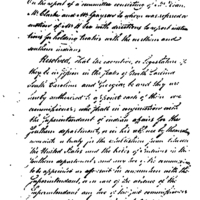 On the report of a committee consisting of Mr. Dean,
Mr. Clarke and Mr. Grayson to whom was referred a
motion of Mr. with directions to report instruc
tions for holding treaties with the northern and
southern indians
Resolved, That the executives, or legislatures if
they be in session in the states of North Carolina
South Carolina and Georgia be and they are
hereby authorised to appoint each of them one
commissioner, who shall in conjunction with
the Superintendent of indian affairs for the
southern department, or in his absence by themselves
a treaty in the establishing peace between
the United States and the tribes of indians in the
southern department; and any two of the commrs
to be appointed as aforesaid in conjunction with the
Superintendent, or in case of the absence of the
Superintendant any two of said commissioners